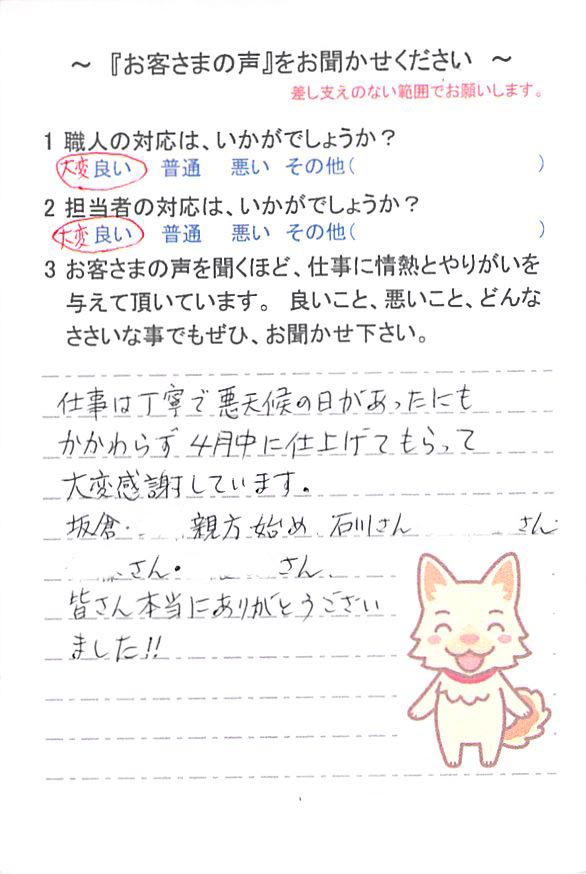 ～ 『お客さまの声』をお聞かせください ～
差し支えのない範囲でお願いします。
1 職人の対応は、いかがでしょうか？
大変良い 普通 悪い その他( )
2 担当者の対応は、いかがでしょうか？
大変良い 普通 悪い その他( )
3 お客さまの声を聞くほど、仕事に情熱とやりがいを
与えて頂いています。 良いこと、悪いこと、どんな
ささいな事でもぜひ、お聞かせ下さい。
仕事は丁寧で悪天候の日があったにも
かかわらず 4月中に仕上げてもらって
大変感謝しています。
坂倉・ 親方始め 石川さん さん
さん・ さん
皆さん本当にありがとうござい
ました!!